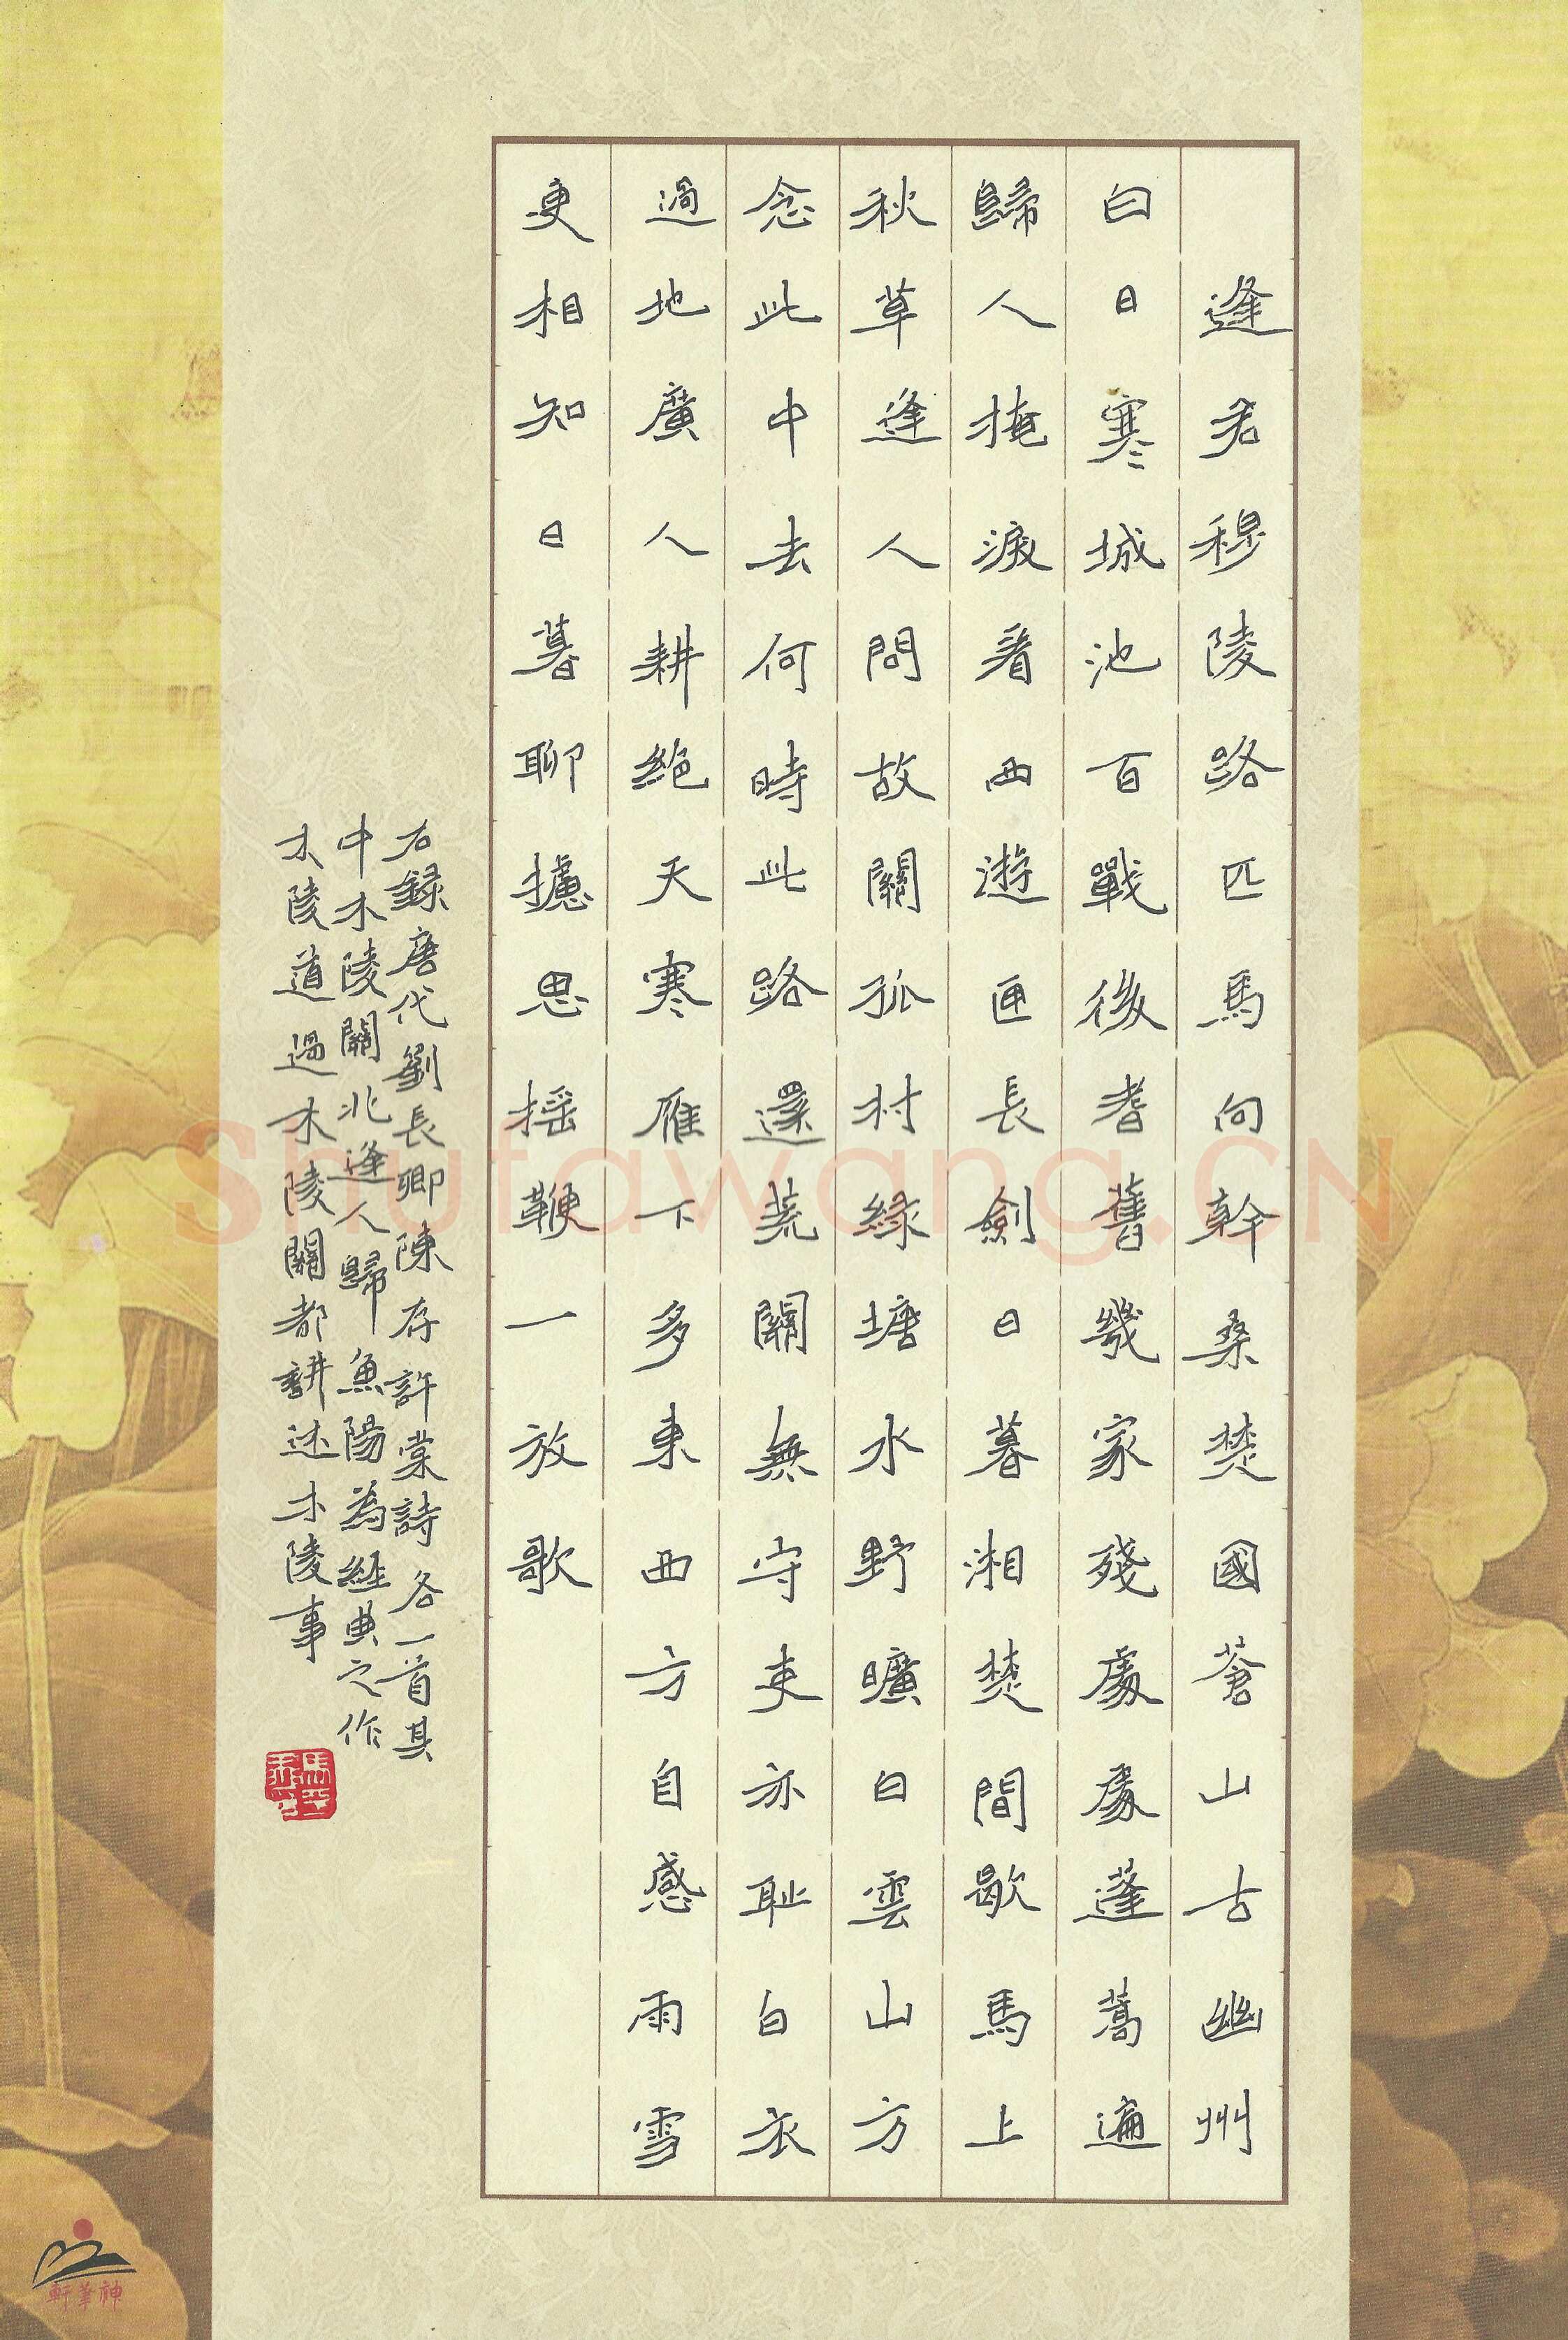 逢君穆陵路匹馬向幹桑楚國蒼山古幽州
白日寒城池百戰後耆舊幾家殘處處蓬蒿遍
歸人掩淚看西遊匣長劍日暮湘楚間歇馬上
秋草逢人問故關孤村綠塘水野曠白雲山方
念此中去何時此路還荒關無守吏亦恥白衣
過地廣人耕絕天寒雁下多東西方自感雨雪
更相知日暮聊攄思揺鞭一放歌
右録唐代劉長卿陳存許棠詩各一首其
中木陵關北逢人歸魚陽為經典之作
木陵道過木陵關都講述木陵事
Shufawang.CN
軒筆神